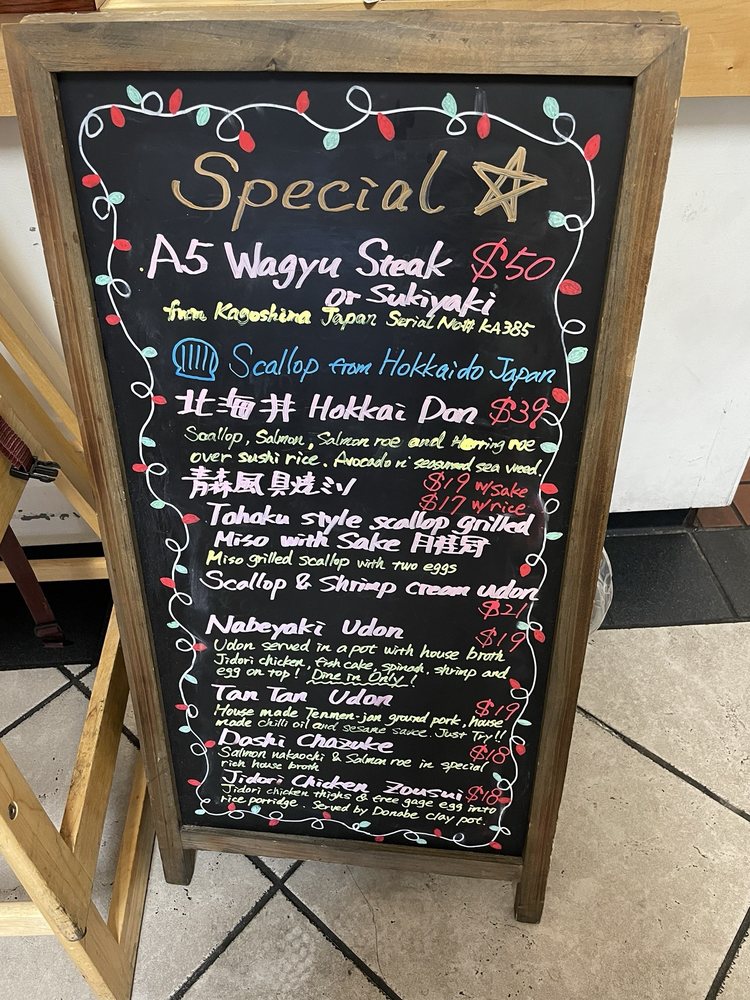 Special
A5 Wagyu Steak $50
or Sukiyaki
from Kagoshima Japan Serial No# KA385
Scallop from Hokkaido Japan
北海丼 Hokkai Don $39
Scallop, Salmon, Salmon roe and Herring roe
over sushi rice. Avocado n' seasoned sea weed.
青森風貝焼ミソ $19 w/sake
$17 w/rice
Tohoku style scallop grilled
Miso with Sake 月桂冠
Miso grilled scallop with two eggs
Scallop & Shrimp cream udon
$21
Nabeyaki Udon $19
Udon served in a pot with house broth
Jidori chicken, fish cake, spinach, shrimp and
egg on top! Dine in Only!
Tan Tan Udon $19
House made Tenmen-jan ground pork, house
made chilli oil and sesame sauce. Just Try!!
Dashi Chazuke $18
Salmon nakaochi & Salmon roe in special
rich house broth
Jidori Chicken Zousui $18
Jidori chicken thighs & free gage egg into
rice porridge. Served by Donabe clay pot.